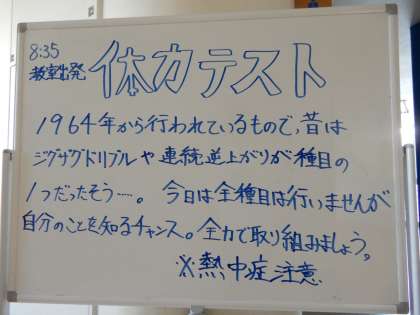 8:35
教室出発
体力テスト
1964年から行われているもので、昔は
ジグザグドリブルや連続逆上がりが種目の
1つだったそう…。今日は全種目は行いませんが
自分のことを知るチャンス。全力で取り組みましょう。
※熱中症注意